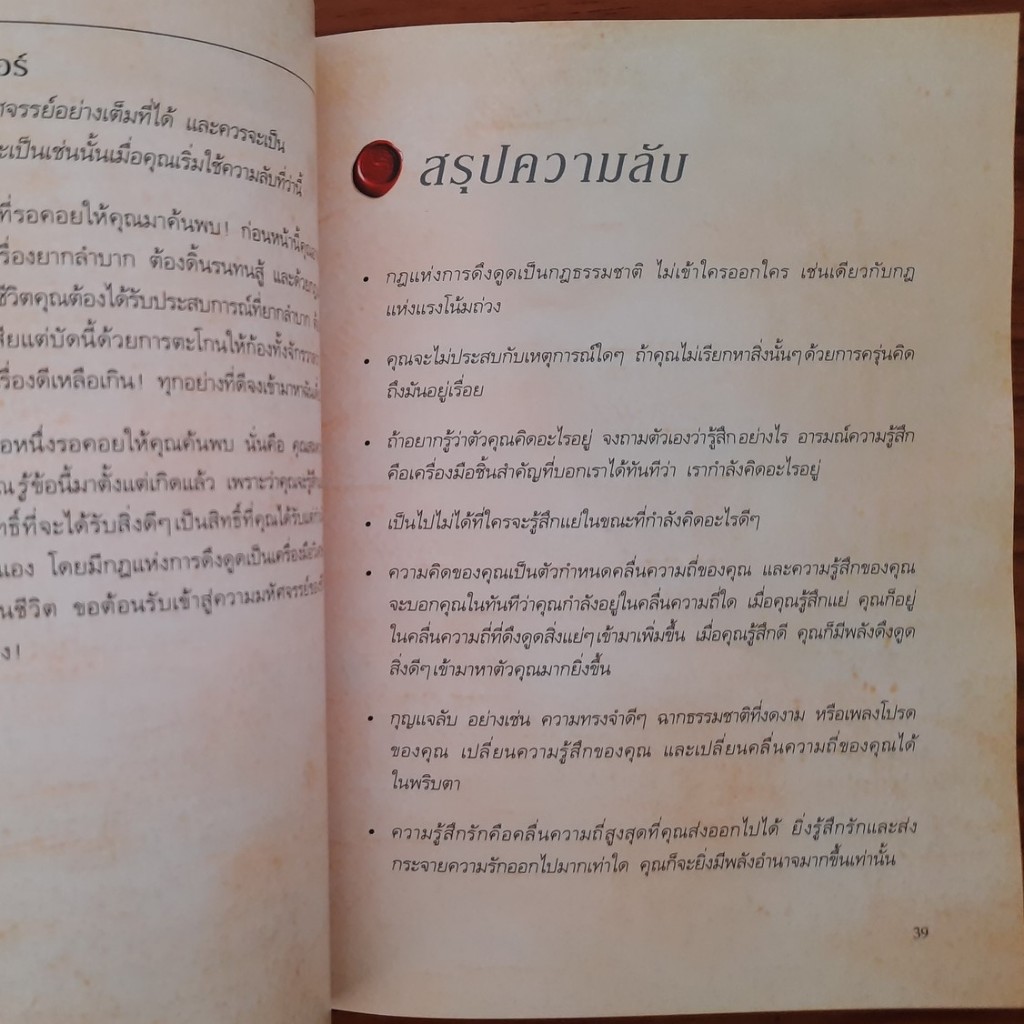 อร์
ศจรรย์อย่างเต็มที่ได้ และควรจะเป็น
ะเป็นเช่นนั้นเมื่อคุณเริ่มใช้ความลับที่ว่านี้
ที่รอคอยให้คุณมาค้นพบ! ก่อนหน้านี้
รื่องยากลำบาก ต้องดิ้นรนทนสู้
ชีวิตคุณต้องได้รับประสบการณ์ที่ยากลำบาก
สียแต่บัดนี้ด้วยการตะโกนให้ก้องทั้ง
รื่องดีเหลือเกิน! ทุกอย่างที่ดีจงเข้ามาหา
อหนึ่งรอคอยให้คุณค้นพบ นั่นคือ
ณรู้ข้อนี้มาตั้งแต่เกิดแล้ว เพราะว่าคุณจะ
ทธิ์ที่จะได้รับสิ่งดีๆ เป็นสิทธิ์ที่คุณได้รับ
นเอง โดยมีกฎแห่งการดึงดูดเป็น
นชีวิต ขอต้อนรับเข้าสู่ความมหัศจรรย์
ง!
สรุปความลับ
• กฎแห่งการดึงดูดเป็นกฎธรรมชาติ ไม่เข้าใครออกใคร เช่นเดียวกับกฎ
แห่งแรงโน้มถ่วง
• คุณจะไม่ประสบกับเหตุการณ์ใดๆ ถ้าคุณไม่เรียกหาสิ่งนั้นๆ ด้วยการครุ่นคิด
ถึงมันอยู่เรื่อย
• ถ้าอยากรู้ว่าตัวคุณคิดอะไรอยู่ จงถามตัวเองว่ารู้สึกอย่างไร อารมณ์ความรู้สึก
คือเครื่องมือชิ้นสำคัญที่บอกเราได้ทันทีว่า เรากำลังคิดอะไรอยู่
• เป็นไปไม่ได้ที่ใครจะรู้สึกแย่ในขณะที่กำลังคิดอะไรดีๆ
• ความคิดของคุณเป็นตัวกำหนดคลื่นความถี่ของคุณ และความรู้สึกของคุณ
จะบอกคุณในทันทีว่าคุณกำลังอยู่ในคลื่นความถี่ใด เมื่อคุณรู้สึกแย่ คุณก็อยู่
ในคลื่นความถี่ที่ดึงดูดสิ่งแย่ๆ เข้ามาเพิ่มขึ้น เมื่อคุณรู้สึกดี คุณก็มีพลังดึงดูด
สิ่งดีๆ เข้ามาหาตัวคุณมากยิ่งขึ้น
• กุญแจลับ อย่างเช่น ความทรงจำดีๆ ฉากธรรมชาติที่งดงาม หรือเพลงโปรด
ของคุณ เปลี่ยนความรู้สึกของคุณ และเปลี่ยนคลื่นความถี่ของคุณได้
ในพริบตา
• ความรู้สึกรักคือคลื่นความถี่สูงสุดที่คุณส่งออกไปได้ ยิ่งรู้สึกรักและส่ง
กระจายความรักออกไปมากเท่าใด คุณก็จะยิ่งมีพลังอำนาจมากขึ้นเท่านั้น
39